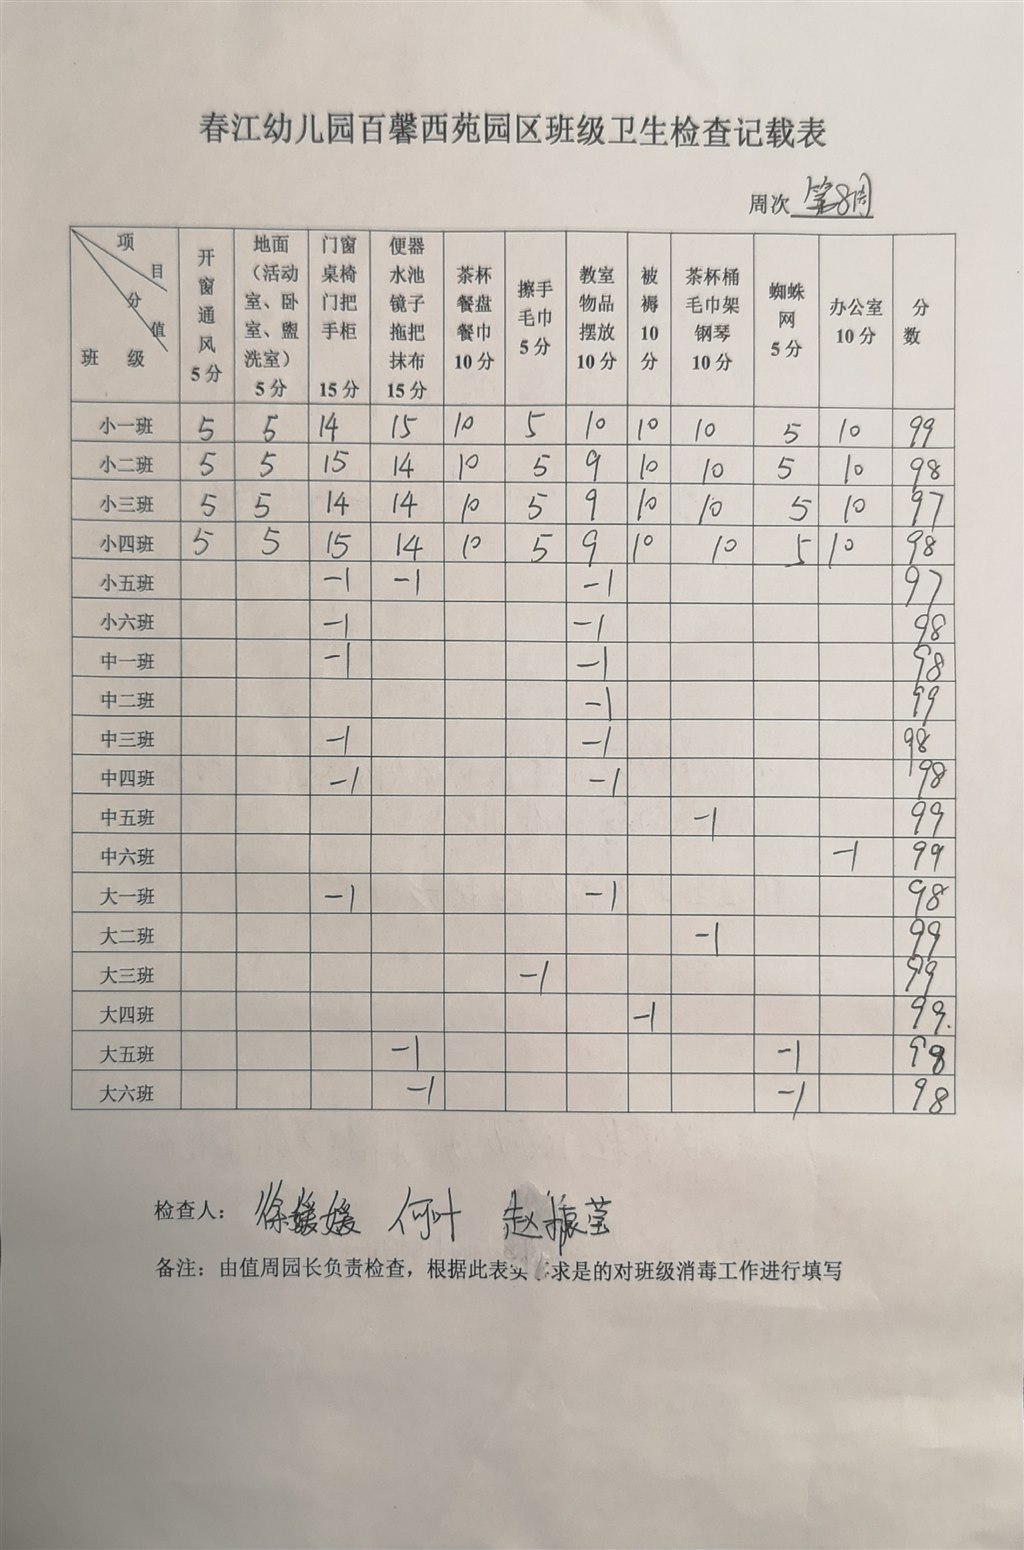 春江幼儿园百馨西苑园区班级卫生检查记载表
周次 第8周
项目 分值 班级 开窗通风5分 地面（活动室、卧室、盥洗室）5分 门窗桌椅门把手柜15分 便器水池镜子拖把抹布15分 茶杯餐盘餐巾10分 擦手毛巾5分 教室物品摆放10分 被褥10分 茶杯桶毛巾架钢琴10分 蜘蛛网5分 办公室10分 分数
小一班 5 5 14 15 10 5 10 10 10 5 10 99
小二班 5 5 15 14 10 5 9 10 10 5 10 98
小三班 5 5 14 14 10 5 9 10 10 5 10 97
小四班 5 5 15 14 10 5 9 10 10 5 10 98
小五班 -1 -1 -1 97
小六班 -1 -1 98
中一班 -1 -1 98
中二班 -1 99
中三班 -1 -1 98
中四班 -1 -1 98
中五班 -1 99
中六班 -1 99
大一班 -1 -1 98
大二班 -1 99
大三班 -1 99
大四班 -1 99.
大五班 -1 -1 98
大六班 -1 -1 98
检查人： 徐媛媛 何叶 赵振莹
备注：由值周园长负责检查，根据此表实 求是的对班级消毒工作进行填写